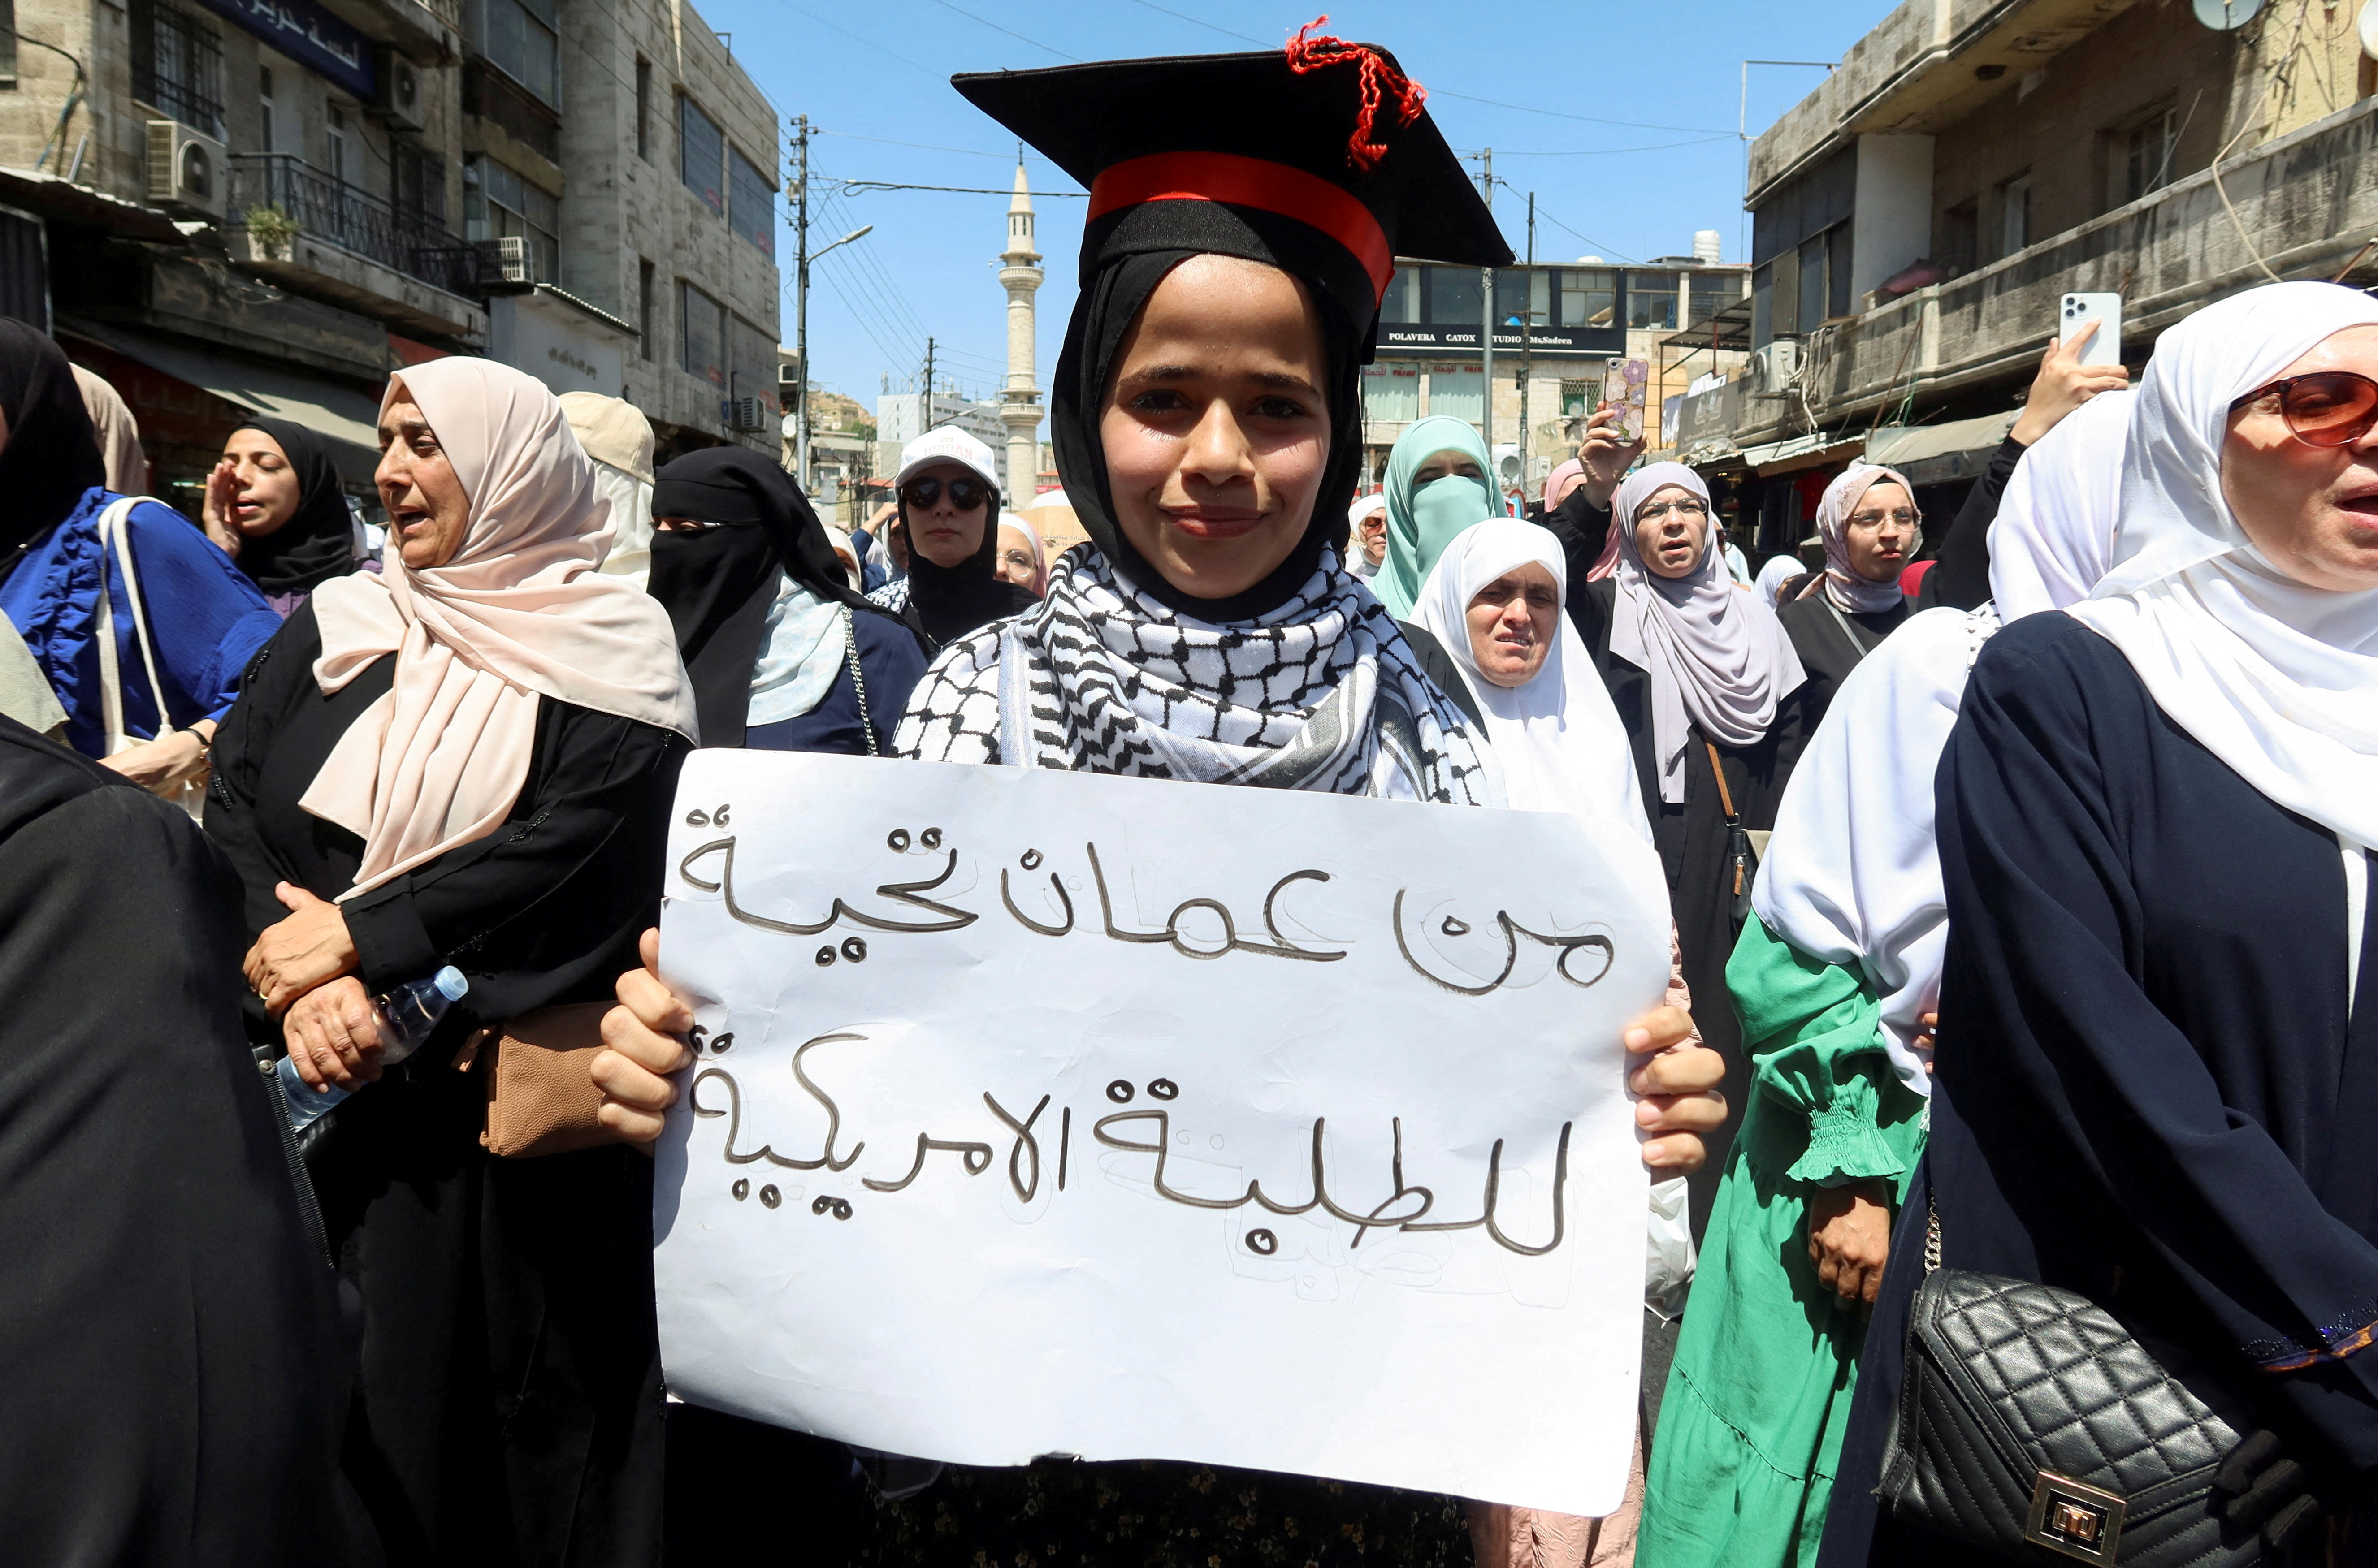 POLAVERA CATOX STUDIO Ms,Sadeen
من عمان تحية
للطلبة الامريكية